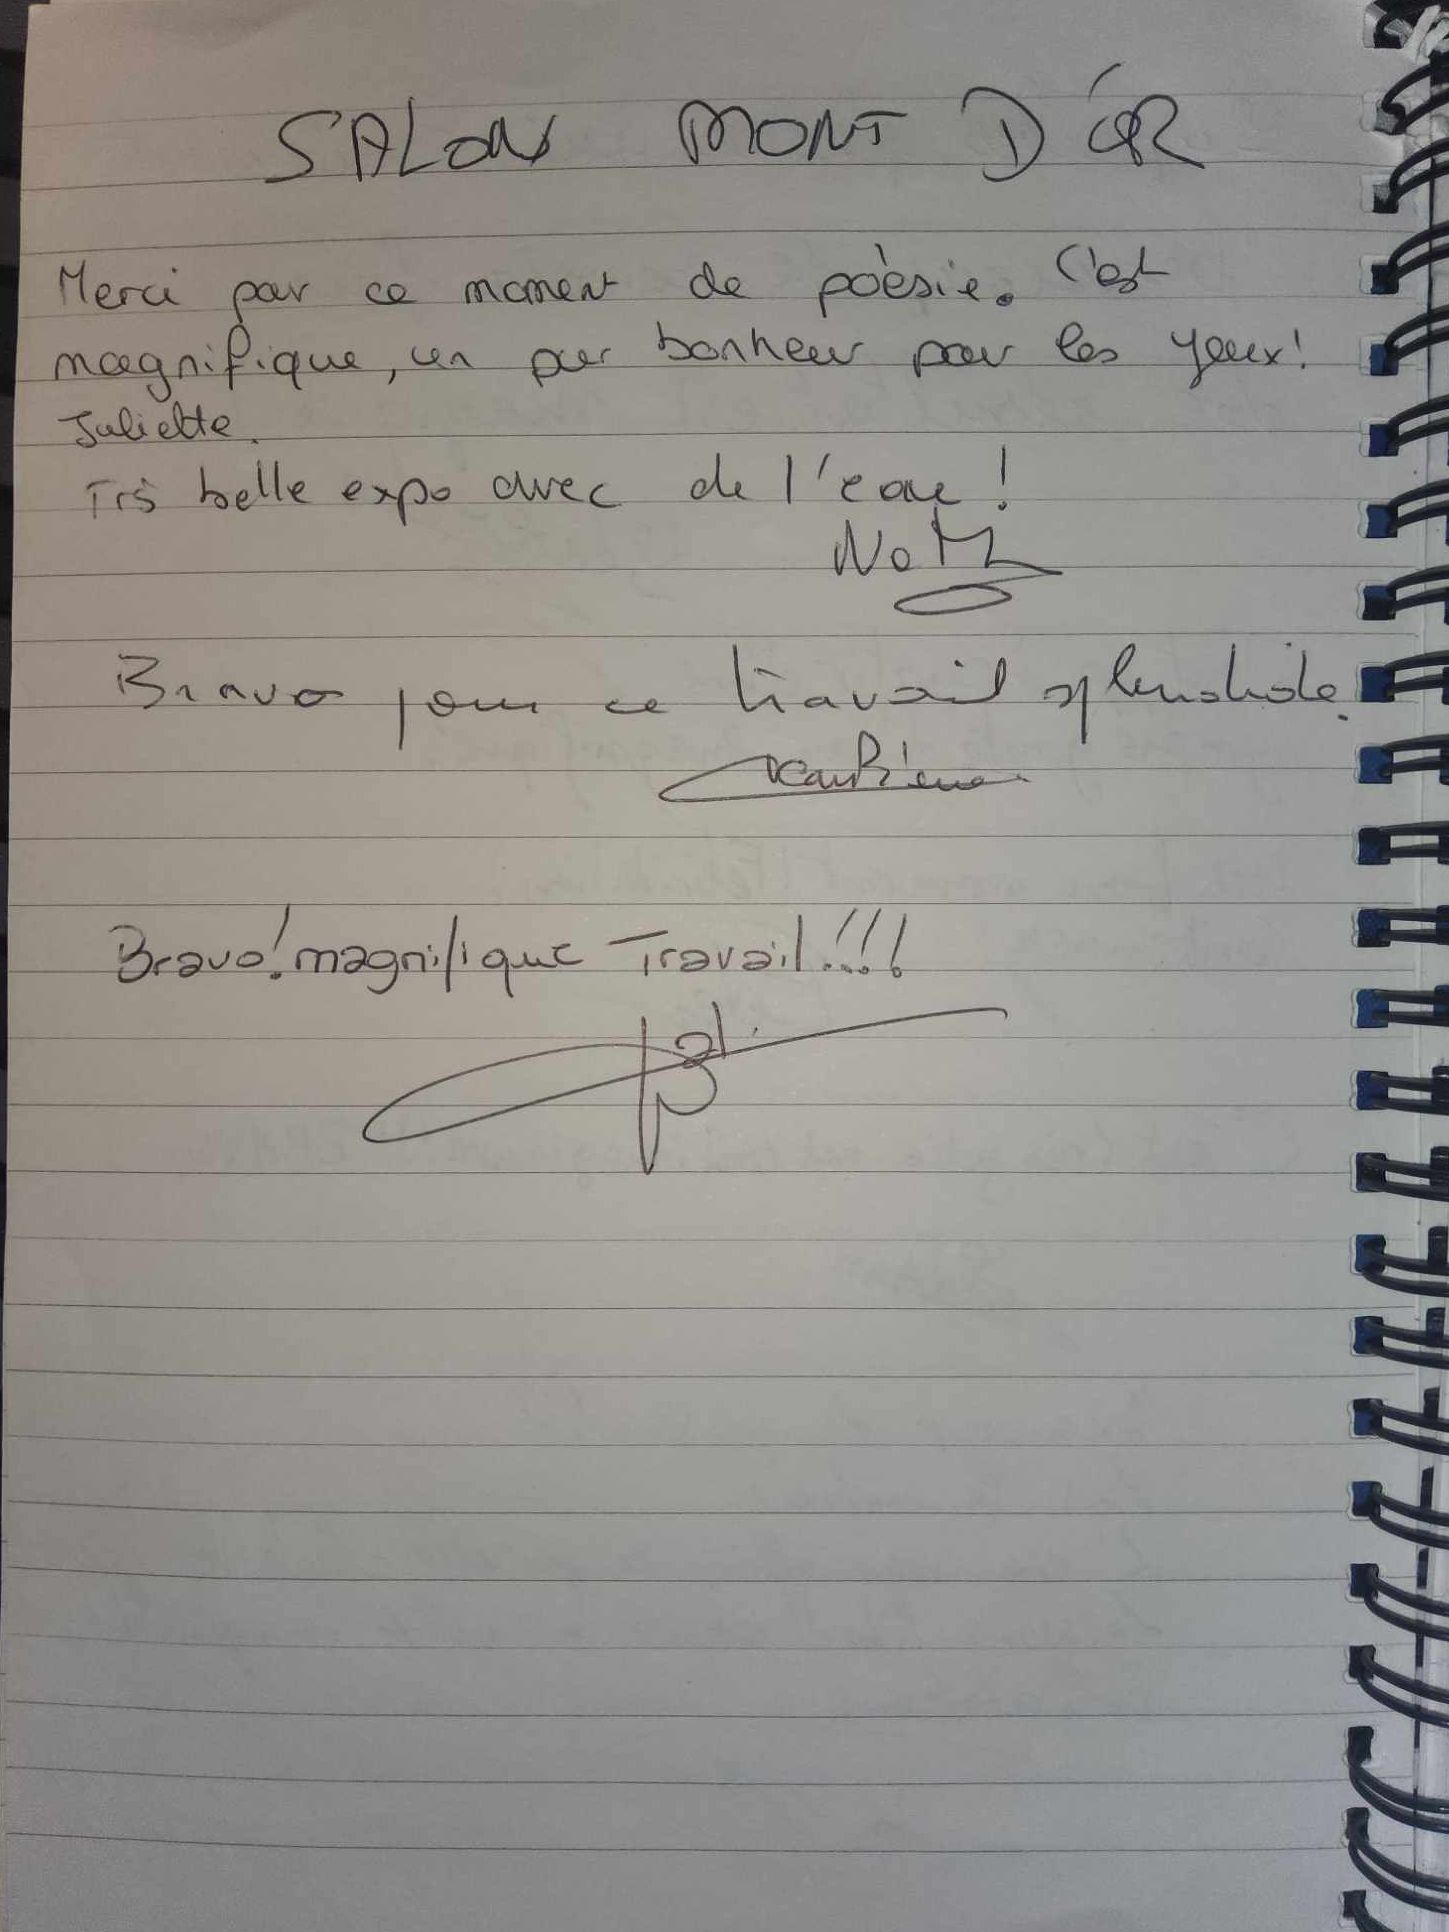 SALON MONT D'OR
Merci pour ce moment de poèsie. C'est
magnifique, un pur bonheur pour les yeux!
Juliette.
Trs belle expo avec de l'eau !
Bravo pour ce travail splendide.
Bravo! magnifique Travail!!!!